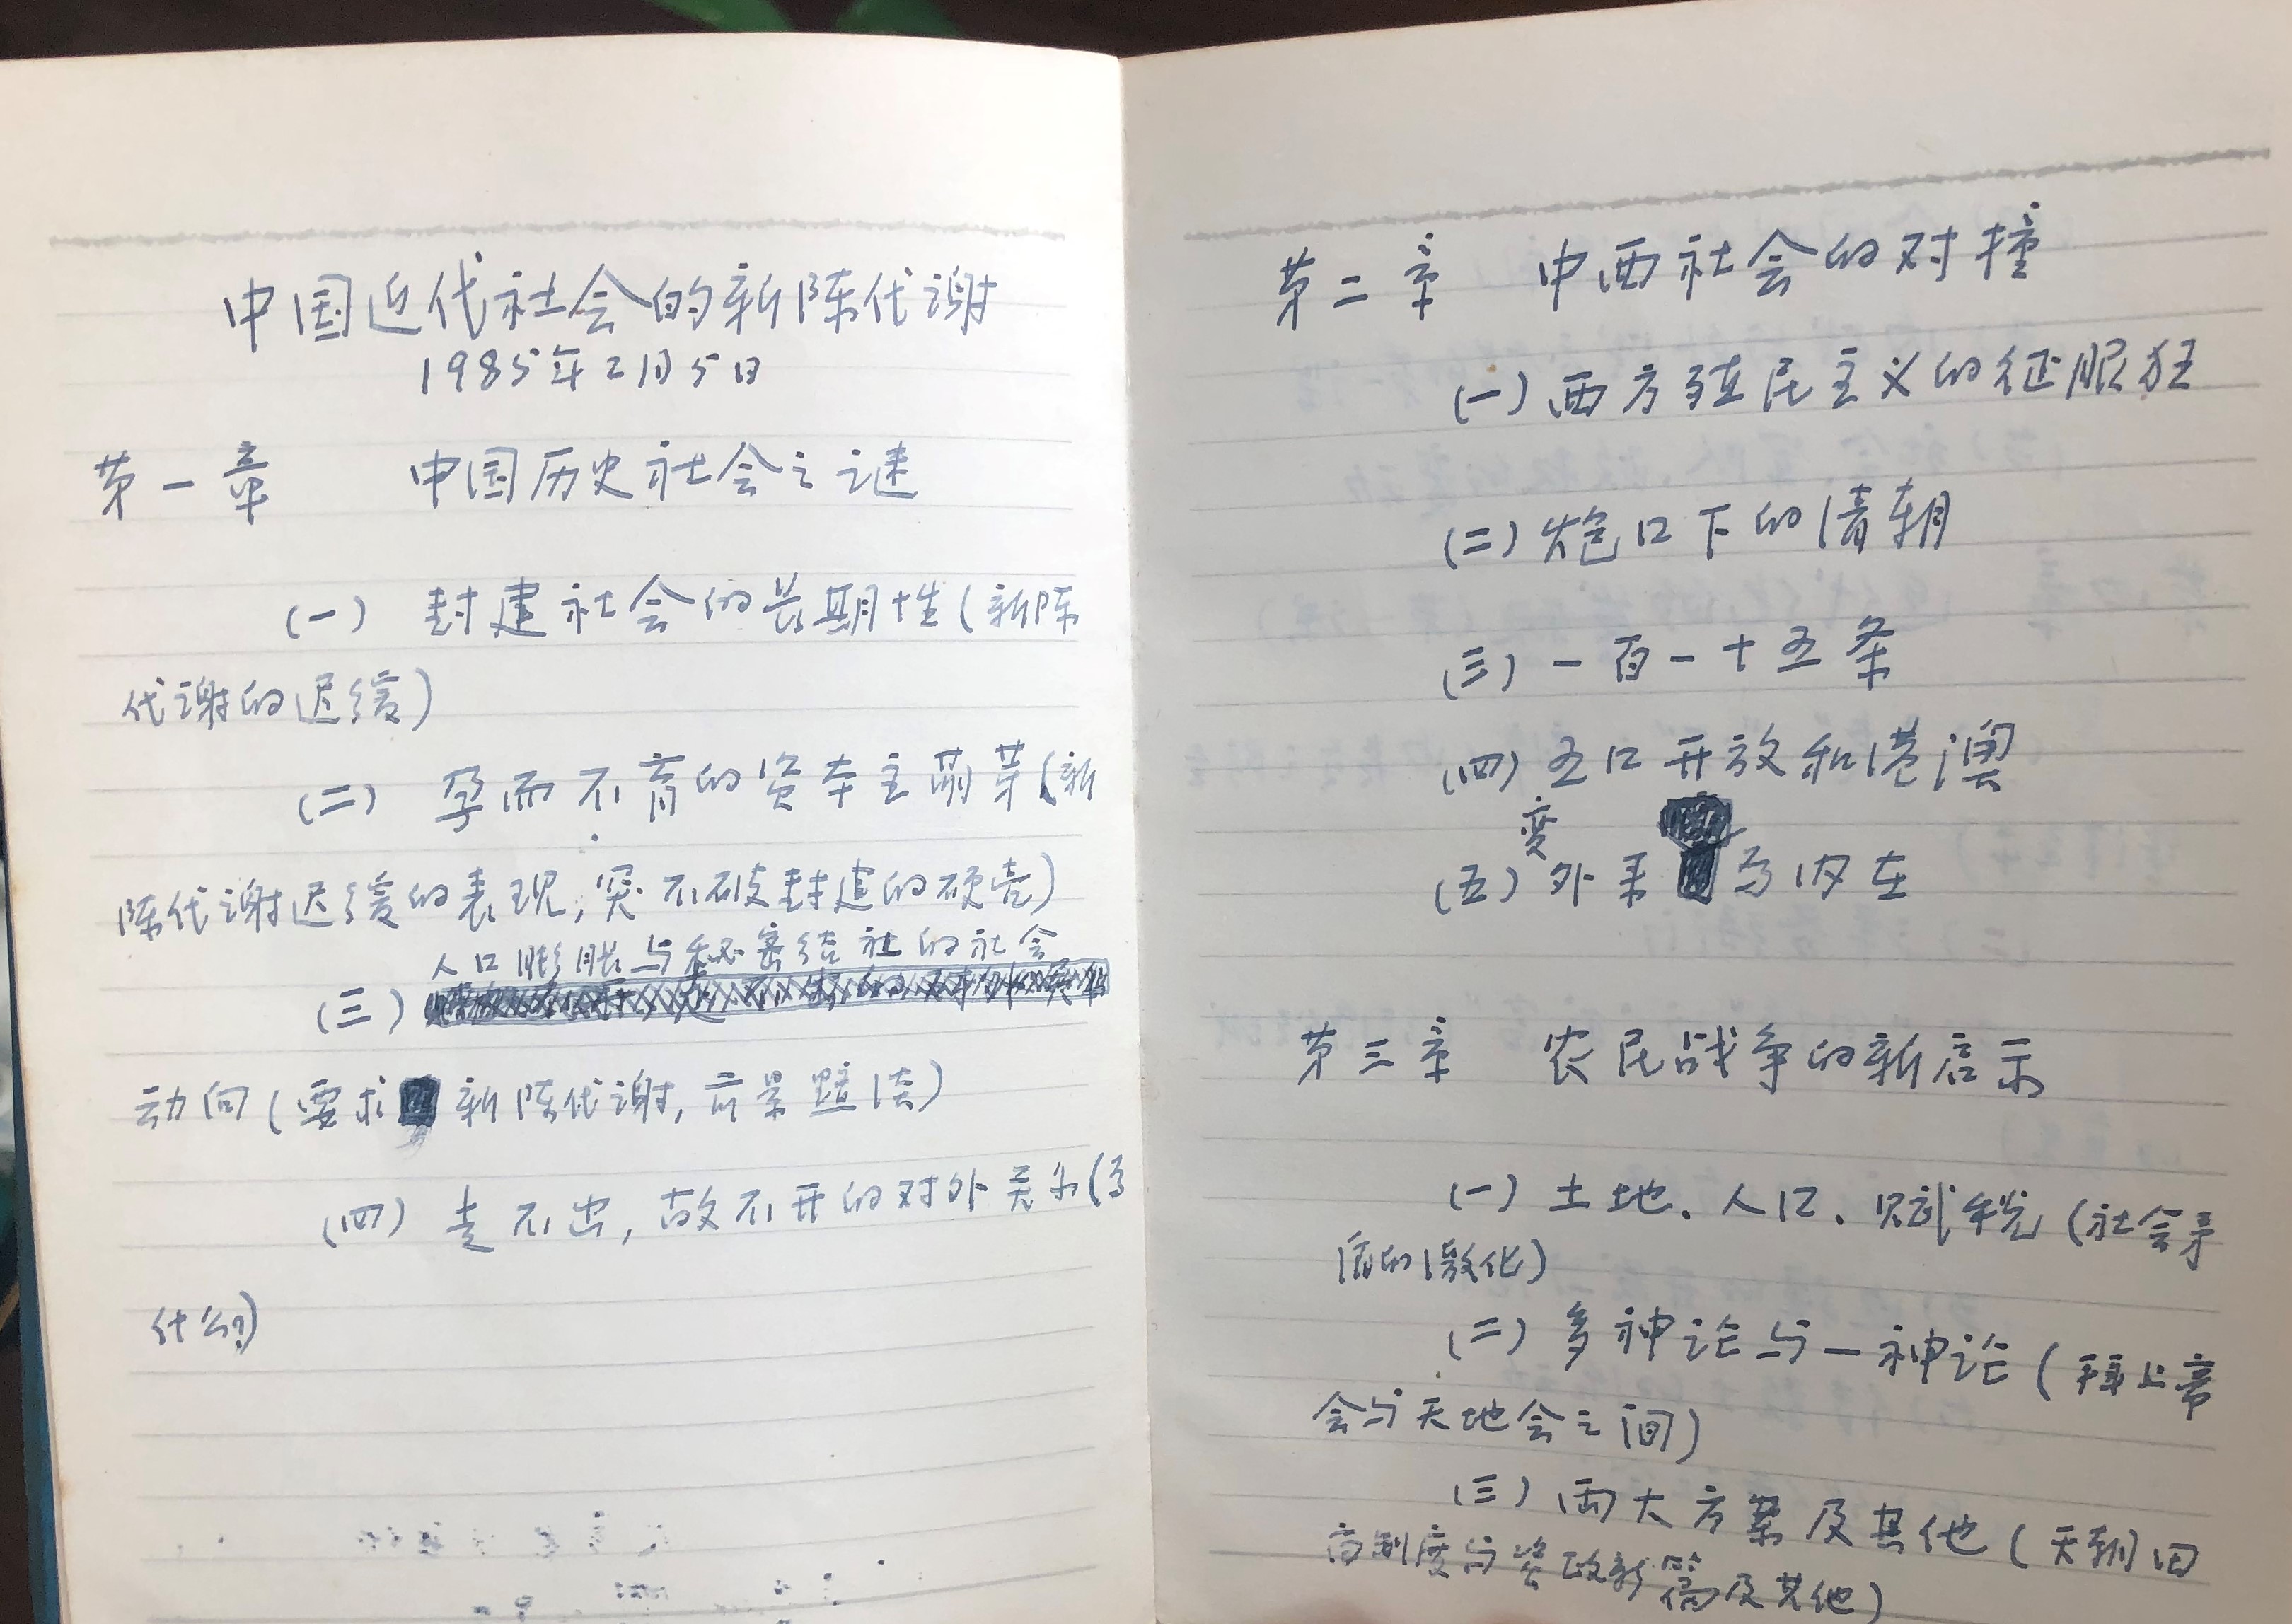 中国近代社会的新陈代谢
1985年2月5日
第一章 中国历史社会之谜
(一) 封建社会的长期性(新陈
代谢的迟缓)
(二) 孕而不育的资本主萌芽(新
陈代谢迟缓的表现,突不破封建的硬壳)
人口膨胀与秘密结社的社会
(三)
动向(要求新陈代谢,
(四) 走不出,放不开的对外关系(
什么?)
第二章 中西社会的对撞
(一)西方殖民主义的征服狂
(二)炮口下的清朝
(三)一百一十五条
(四)五口开放和港澳
变
(五)外来与内在
第三章 农民战争的新启示
(一)土地、人口、赋税(社会矛
盾的激化)
(二)多神论与一神论(拜上帝
会与天地会之间)
(三)两大方案及其他(天朝田
亩制度与资政新篇及其他)